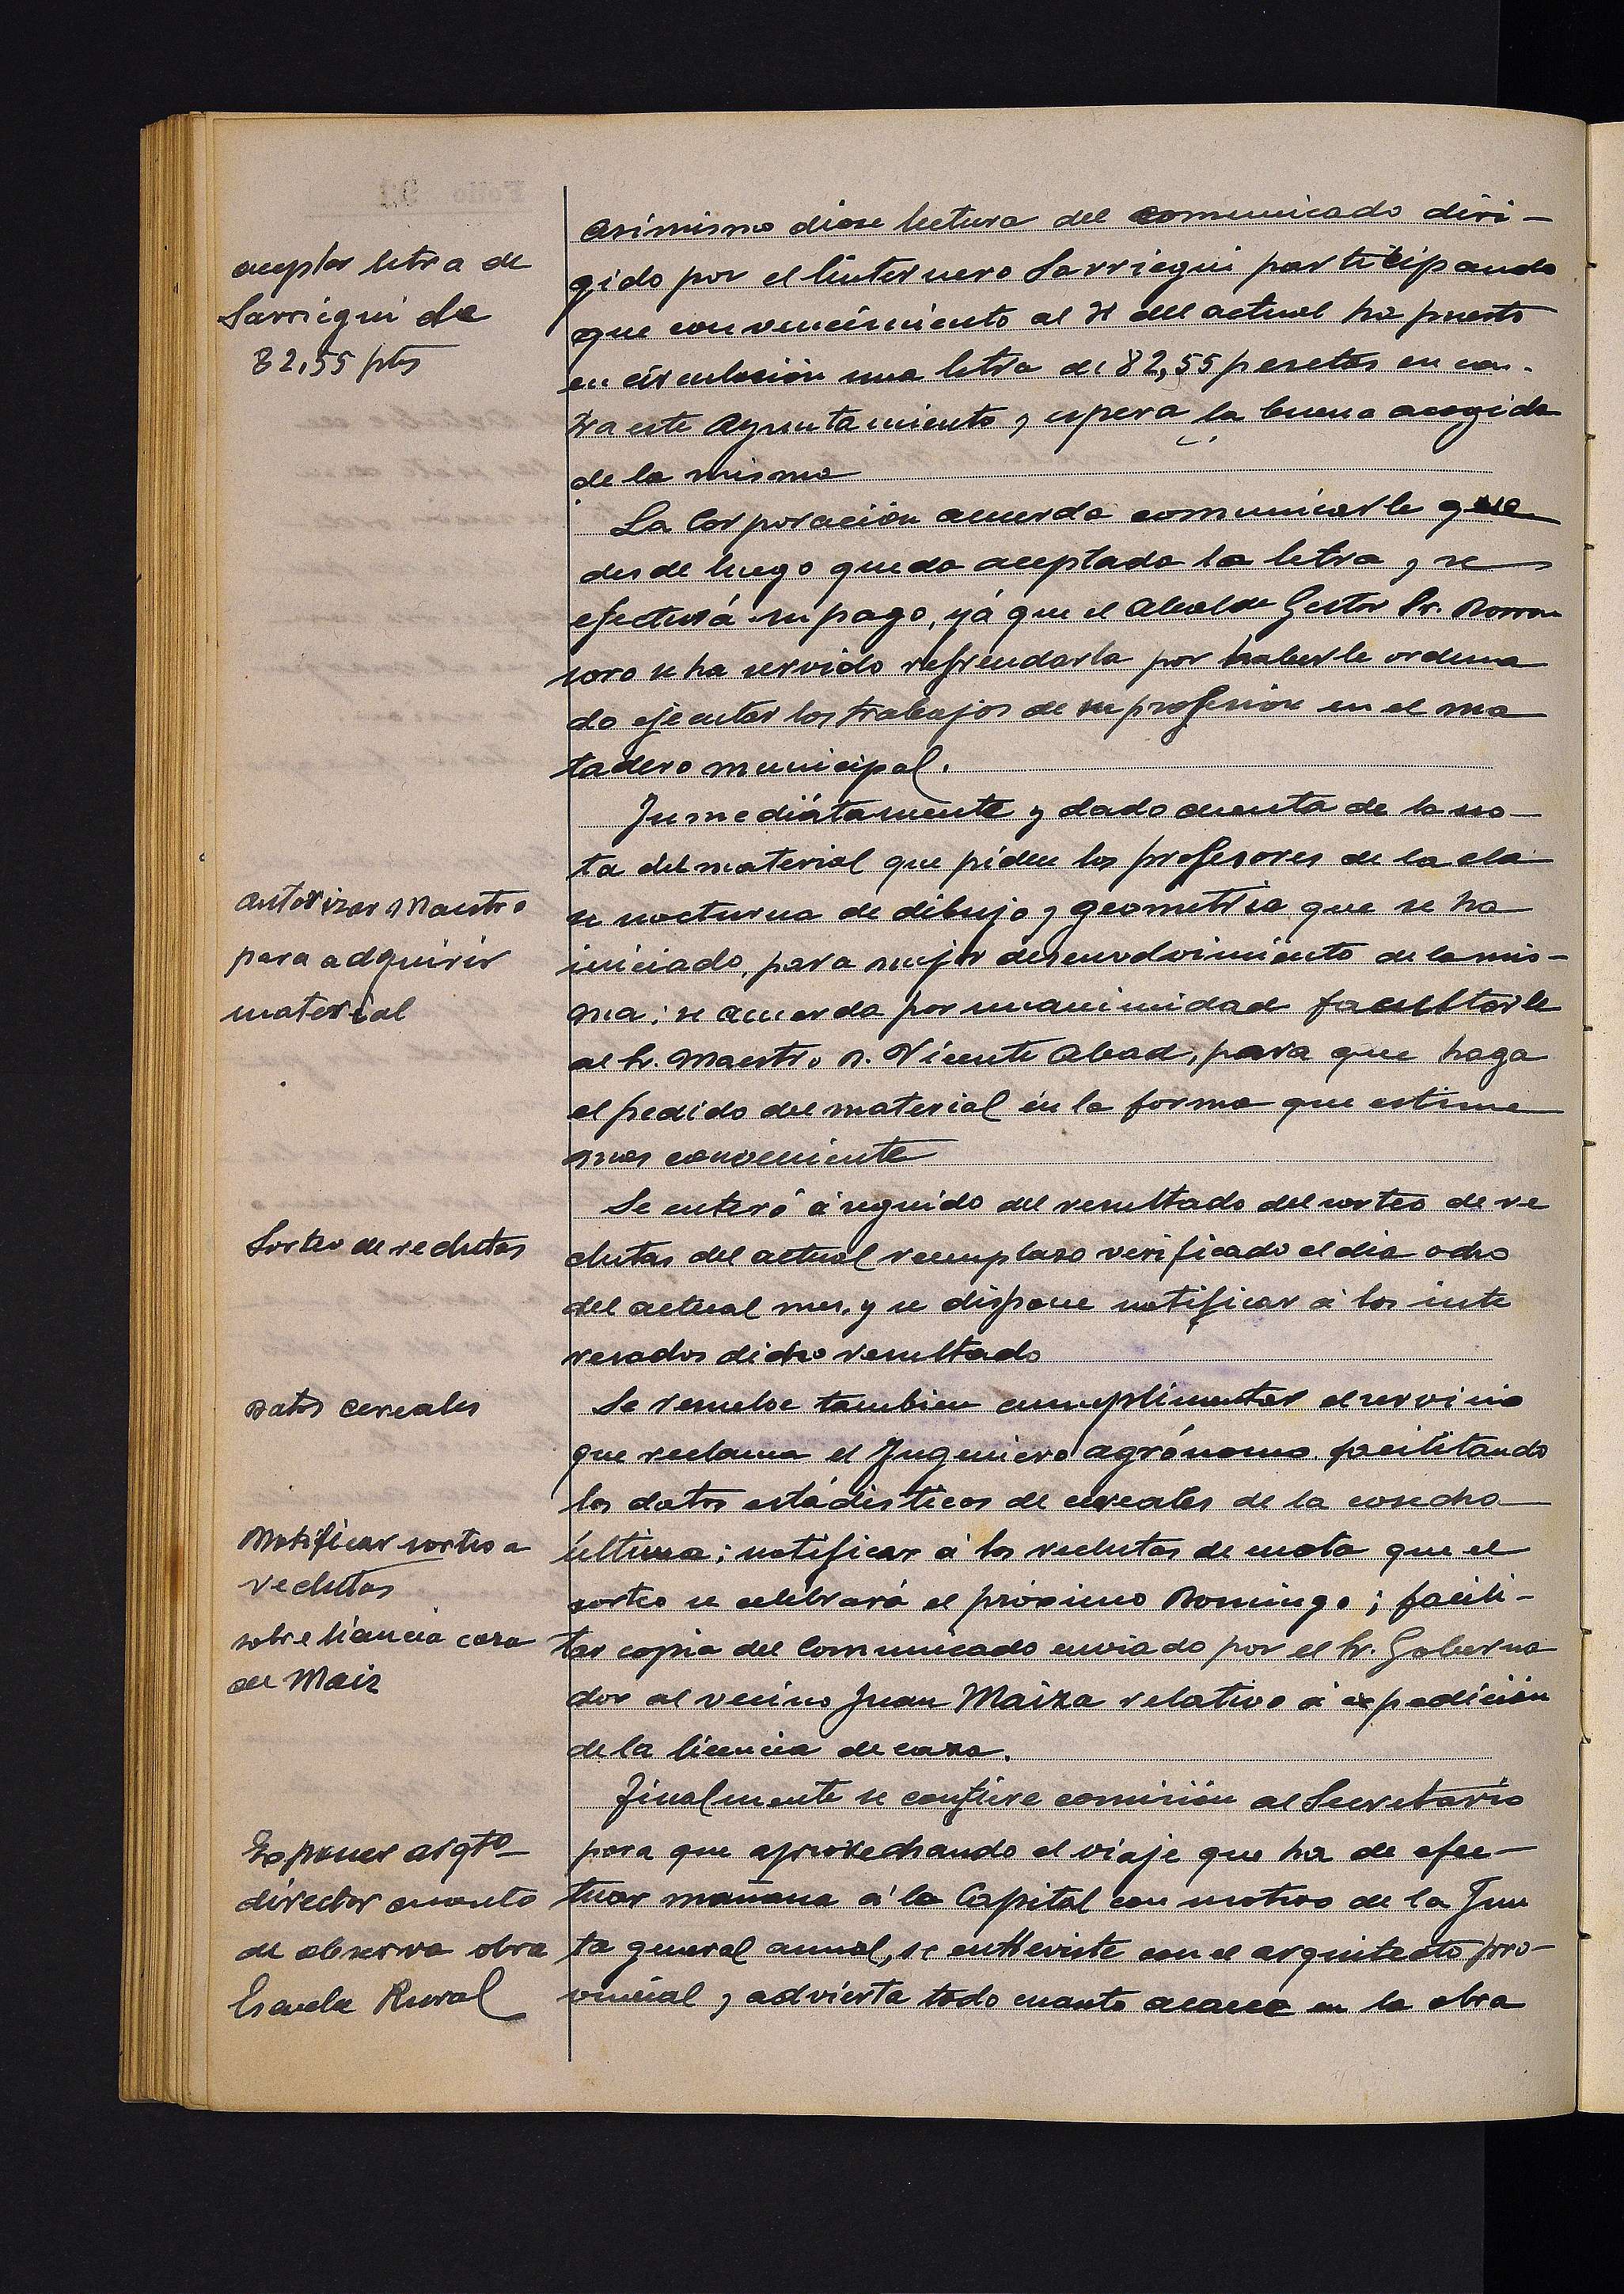 aceptar letra de
Sarriegui de
82,55 pts
Asimismo diose lectura del comunicado diri-
gido por el linternero Sarriegui participando
que con vencimiento al del actual ha puesto
en circulación una letra de 82,55 pesetas en con-
tra este Ayuntamiento y espera la buena acogida
de la misma
La Corporación acuerda comunicarle que
desde luego queda aceptada la letra y se
efectuará su pago, yá que el Alcalde Gestor Sr.
se ha servido refrendarla por haberle ordena
do ejecutar los trabajos de su profesion en el ma
tadero municipal.
autorizar Maestro
para adquirir
material
Inmediátamente y dado cuenta de la no-
ta del material que piden los profesores de la cla
se nocturna de dibujo y geometria que se ha
iniciado, para mejor desenvolvimiento de la mis-
ma; se acuerda por unanimidad facultarle
al Sr. Maestro D. Vicente Abad, para que haga
el pedido del material en la forma que estime
mas conveniente
Sorteo de reclutas
Se enteró á seguido del resultado del sorteo de re
clutas del actual reemplazo verificado el dia ocho
del actual mes, y se dispone notificar á los inte
resados dicho resultado
Datos cereales
Se resuelve tambien cumplimentar el servicio
que reclama el Ingeniero agrónomo, facilitando
los datos estádisticos de cereales de la cosecha
Notificar sorteo a
reclutas
sobre licencia caza
de Maiz
última; notificar á los reclutas de cuota que el
sorteo se celebrará el próximo Domingo; facili-
tar copia del Comunicado enviado por el Sr. Goberna
dor al vecino Juan Maiza relativo á expedición
de la licencia de caza.
Exponer arqto
director cuanto
de observa obra
Escuela Rural
Finalmente se confiere comisión al Secretario
para que aprovechando el viaje que ha de efec-
tuar mañana á la Capital con motivo de la Jun
ta general anual, se entreviste con el arquitecto pro-
vincial y advierta todo cuanto acaece en la obra